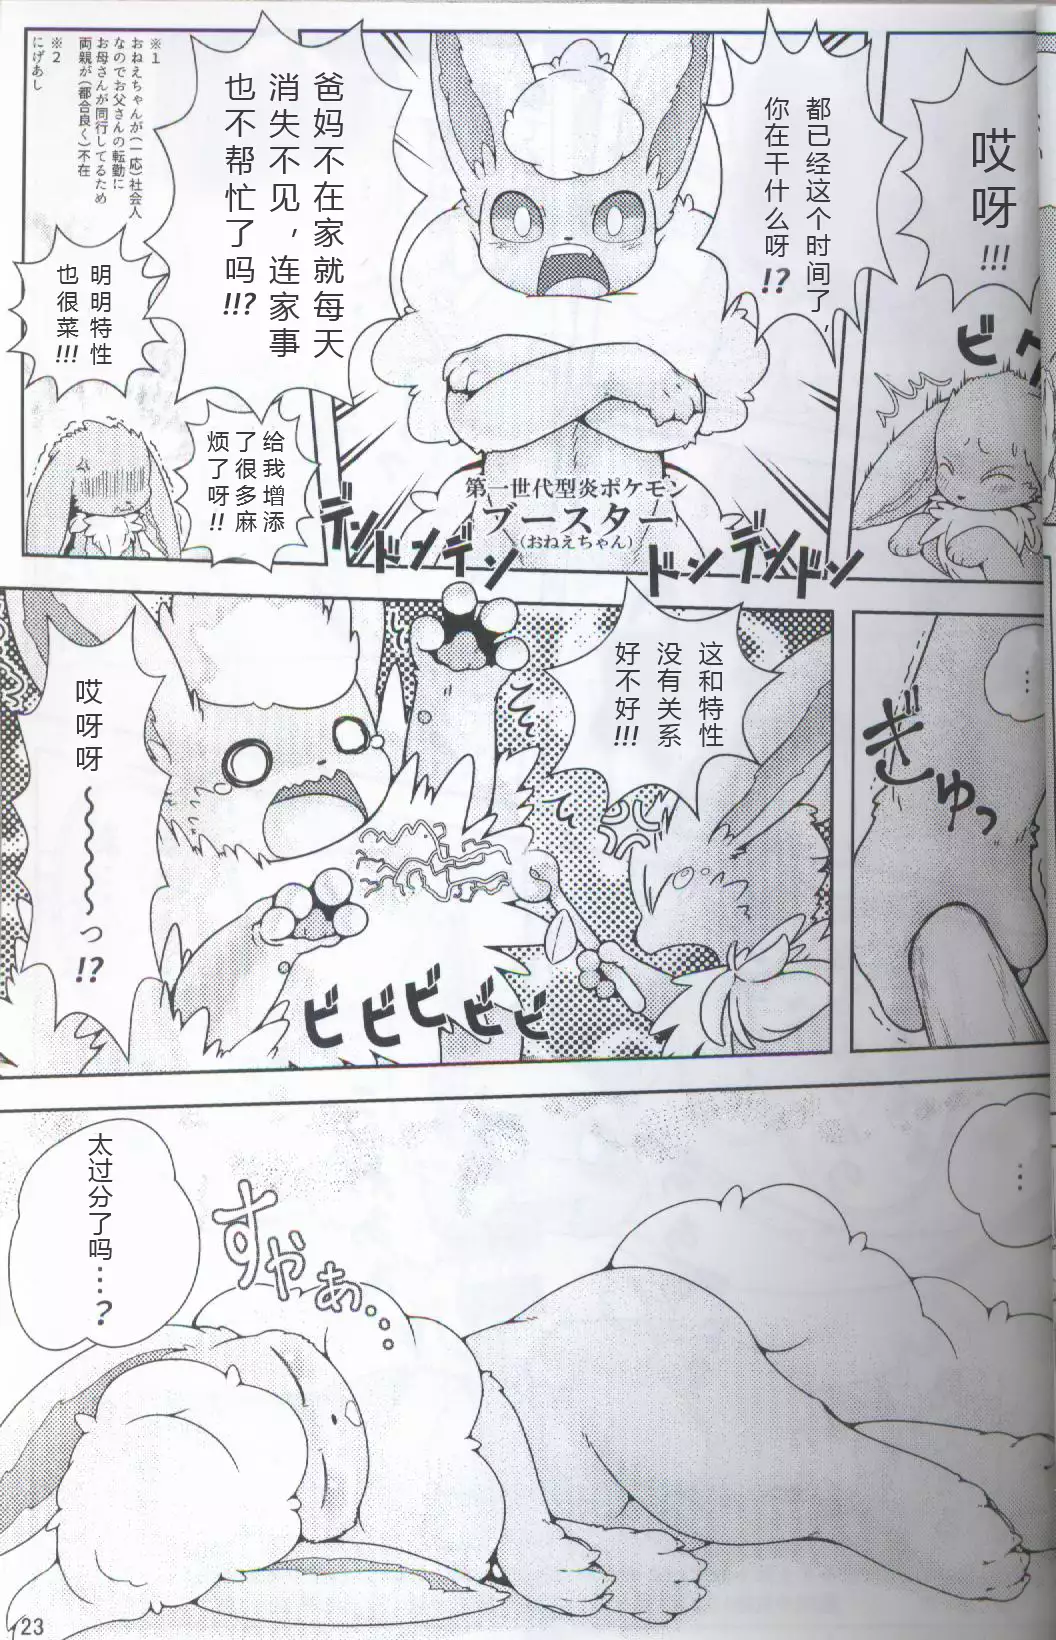 哎呀!!!
ビ
都已经这个时间了,
你在干什么呀!?
爸妈不在家就每天
消失不见,连家事
也不帮忙了吗!!?
第一世代型炎ポケモン
ブースター
(おねえちゃん)
デンドンデン
ドンデンドン
給我増添
了很多麻
烦了呀!!
明明特性
也很菜!!!
※1
おねえちゃんが(一応)社会人
なのでお父さんの転勤に
お母さんが同行してるため
両親が(都合良く)不在
※2
にげあし
…
ぎゅっ
这和特性
没有关系
好不好!!!
哎呀呀~~~~~っ!?
ビビビビビ
…
すやあ…。
太过分了吗…?
23